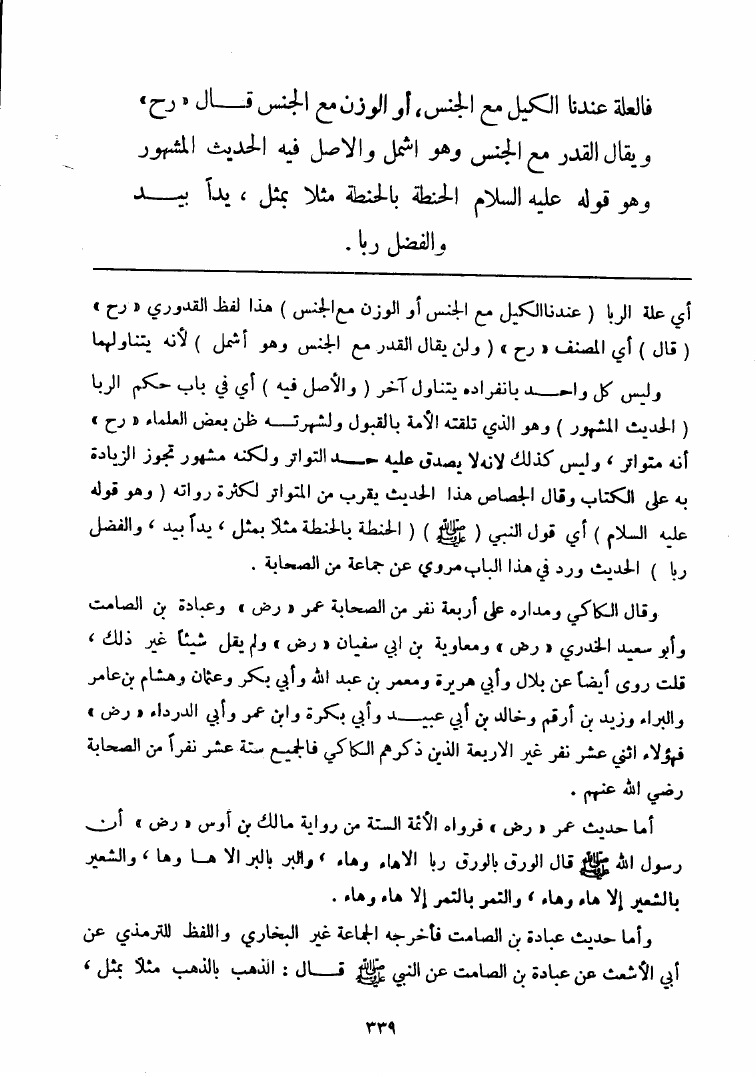 فالعلة عندنا الكيل مع الجنس، أو الوزن مع الجنس قـــال «رح»
ويقال القدر مع الجنس وهو اشمل والاصل فيه الحديث المشهور
وهو قوله عليه السلام الحنطة بالحنطة مثلا بمثل ، يداً بيـــد
والفضل ربا .
أي علة الربا ( عندنا الكيل مع الجنس أو الوزن مع الجنس ) هذا لفظ القدوري «رح»
( قال ) أي المصنف «رح» ( ولن يقال القدر مع الجنس وهو أشمل ) لأنه يتناولهما
وليس كل واحـــد بانفراده يتناول آخر ( والأصل فيه ) أي في باب حكم الربا
( الحديث المشهور ) وهو الذي تلقته الأمة بالقبول ولشهرتـــه ظن بعض العلماء «رح»
أنه متواتر ، وليس كذلك لانه لا يصدق عليه حـــد التواتر ولكنه مشهور تجوز الزيادة
به على الكتاب وقال الجصاص هذا الحديث يقرب من المتواتر لكثرة رواته ( وهو قوله
عليه السلام ) أي قول النبي ( ﷺ ) ( الحنطة بالحنطة مثلا بمثل ، يداً بيد ، والفضل
ربا ) الحديث ورد في هذا الباب مروي عن جماعة من الصحابة .
وقال الكاكي ومداره على أربعة نفر من الصحابة عمر «رض» وعبادة بن الصامت
وأبو سعيد الخدري «رض» ومعاوية بن ابي سفيان «رض» ولم يقل شيئاً غير ذلك ،
قلت روى أيضاً عن بلال وأبي هريرة ومعمر بن عبد الله وأبي بكر وعثمان وهشام بن عامر
والبراء وزيد بن أرقم وخالد بن أبي عبيـــد وأبي بكرة وابن عمر وأبي الدرداء «رض»
فهؤلاء اثني عشر نفر غير الاربعة الذين ذكرهم الكاكي فالجميع ستة عشر نفراً من الصحابة
رضي الله عنهم .
أما حديث عمر «رض» فرواه الأئمة الستة من رواية مالك بن أوس «رض» أن
رسول الله ﷺ قال الورق بالورق ربا الا هاء وهاء ، والبر بالبر الا هـا وها ، والشعير
بالشعير إلا هاء وهاء ، والتمر بالتمر إلا هاء وهاء .
وأما حديث عبادة بن الصامت فأخرجه الجماعة غير البخاري واللفظ للترمذي عن
أبي الأشعث عن عبادة بن الصامت عن النبي ﷺ قـــال : الذهب بالذهب مثلاً بمثل ،
٣٣٩